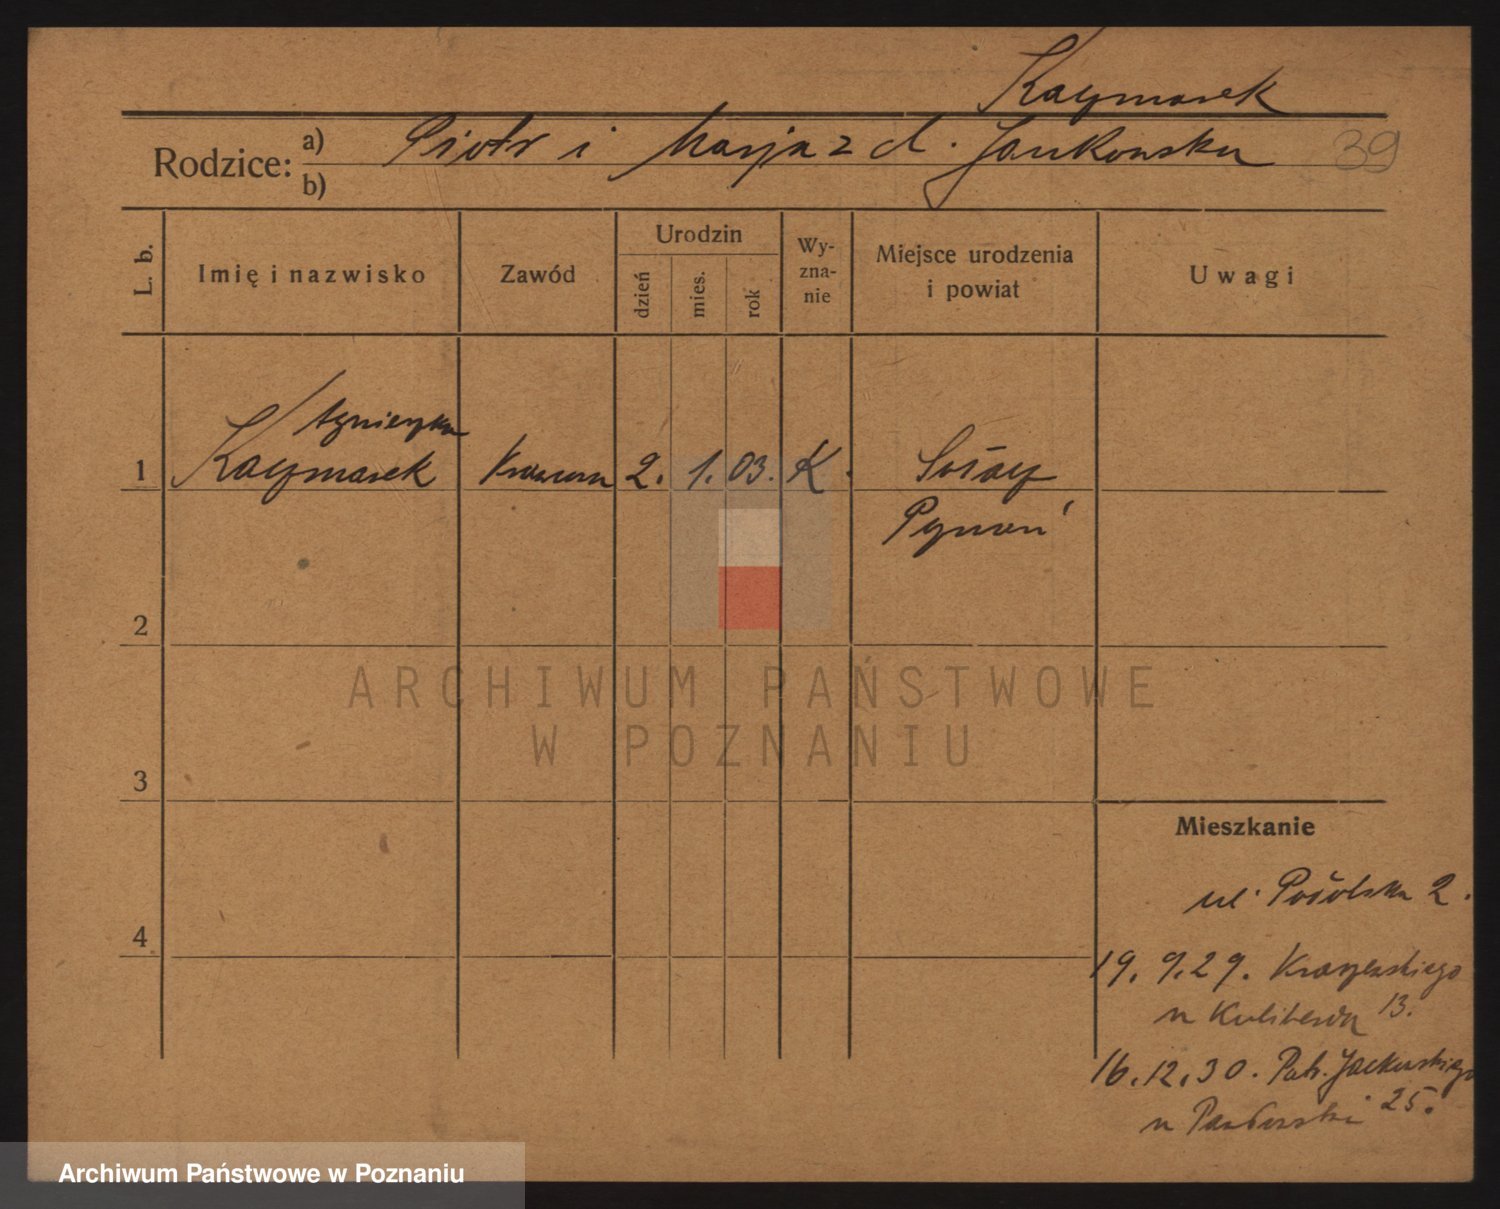 Kaczmarek
Rodzice: a) Piotr i Marja z d. Jankowska 39
b)
L. b. Imię i nazwisko Zawód Urodzin dzień mies. rok Wy-zna-nie Miejsce urodzenia i powiat Uwagi
Agnieszka
1 Kaczmarek Krawcowa 2. 1. 03. K.
Poznań
2
ARCHIWUM PAŃSTWOWE
W POZNANIU
3
Mieszkanie
ul. 2.
4
19. 9. 29. Kraszewskiego
u 13.
16. 12. 30. Patr. Jackowskiego
u 25.
Archiwum Państwowe w Poznaniu